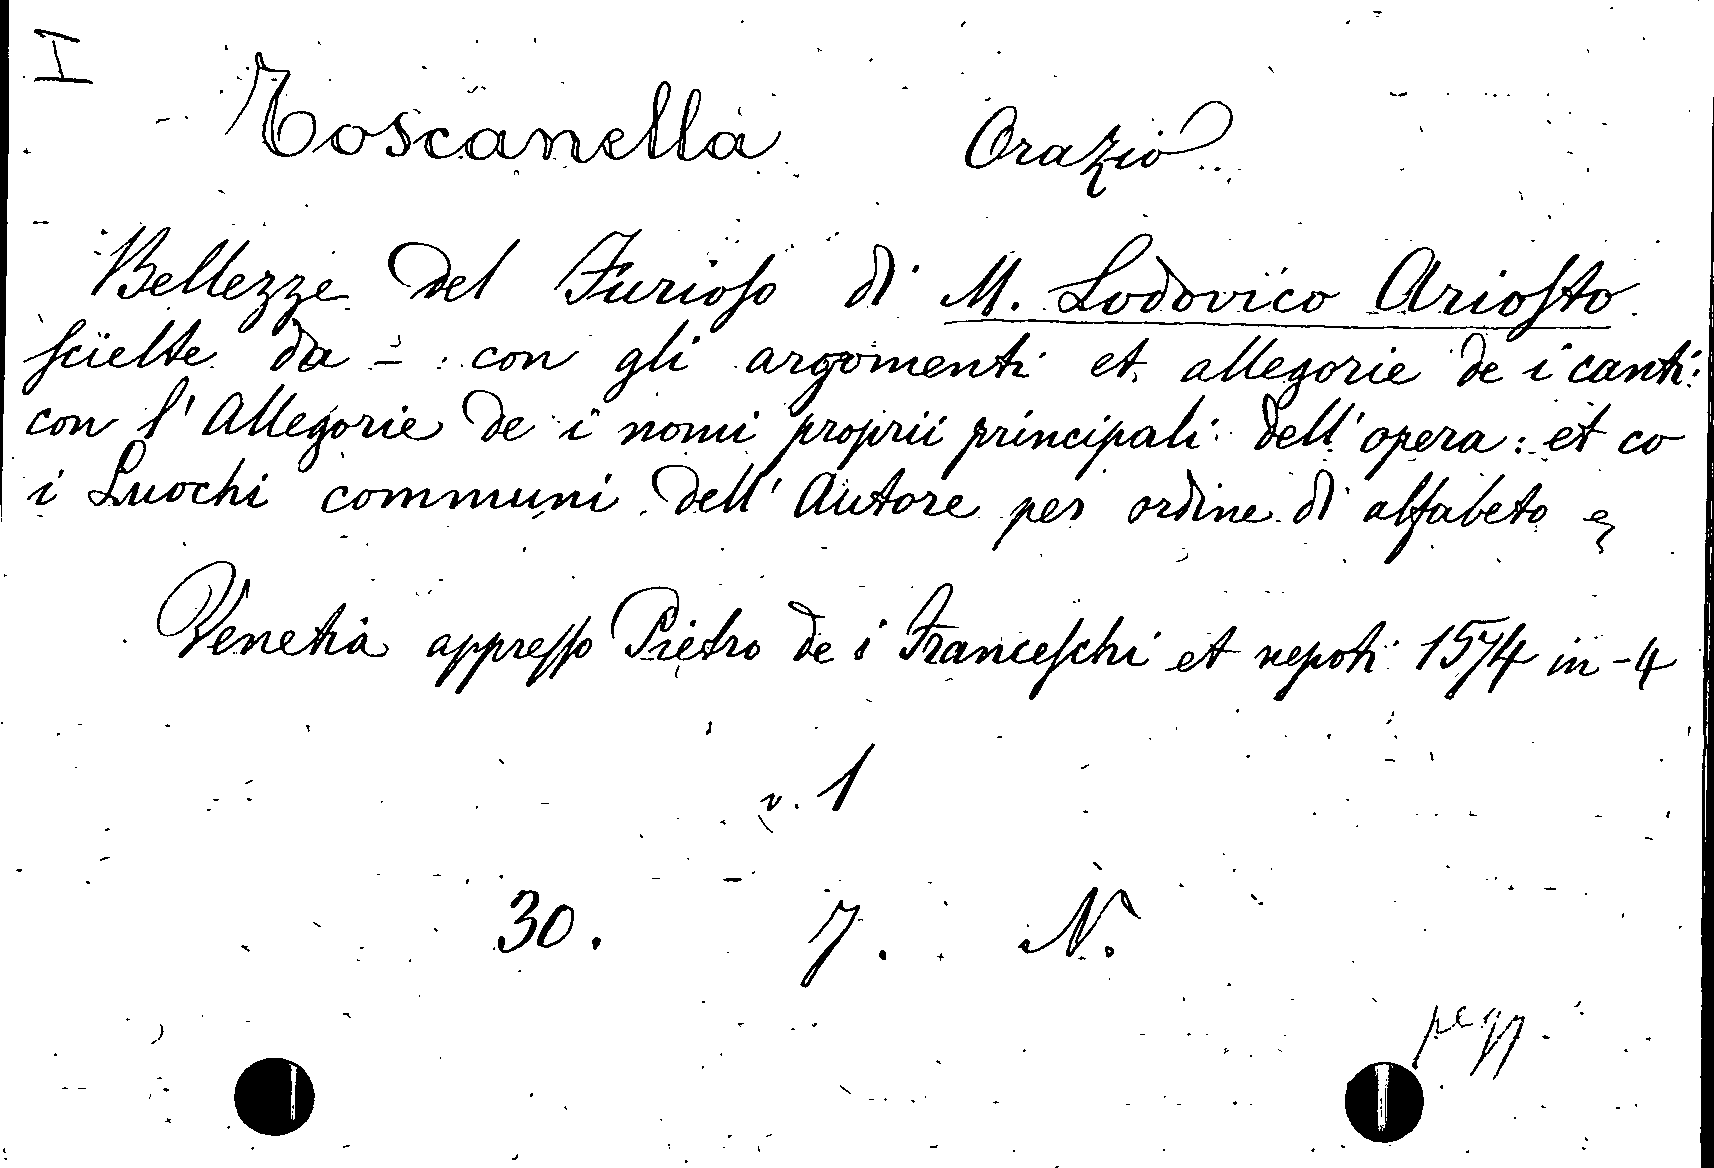 I
Toscanella Orazio
Bellezze del Furioſo di M. Lodovico Arioſto
ſcielte da - : con gli argomenti et allegorie de i canti:
con l'Allegorie de i nomi proprii principali dell'opera: et co
i Luochi communi dell'Autore per ordine di alfabeto
Venetia appreſſo Pietro de i Franceſchi et nepoti 1574 in-4
v. 1
30. 7. N.